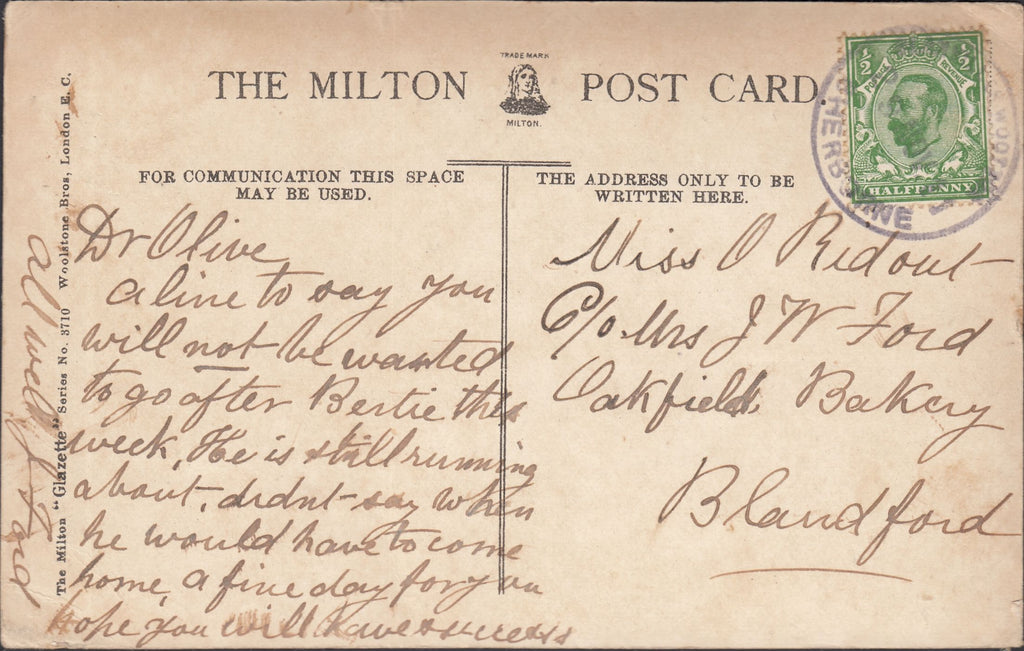 THE MILTON TRADE MARK MILTON. POST CARD.
FOR COMMUNICATION THIS SPACE
MAY BE USED.
THE ADDRESS ONLY TO BE
WRITTEN HERE.
½ ½
POSTAGE REVENUE
HALFPENNY
SHERBORNE
The Milton "Glazette" Series No. 3710 Woolstone Bros, London E. C.
Dr Olive
a line to say you
will not be wanted
to go after Bertie this
week, He is still running
about, didnt say when
he would have to come
home, a fine day for you
hope you will have success
all well
Miss O Ridout
C/o Mrs J W Ford
Oakfield Bakery
Blandford